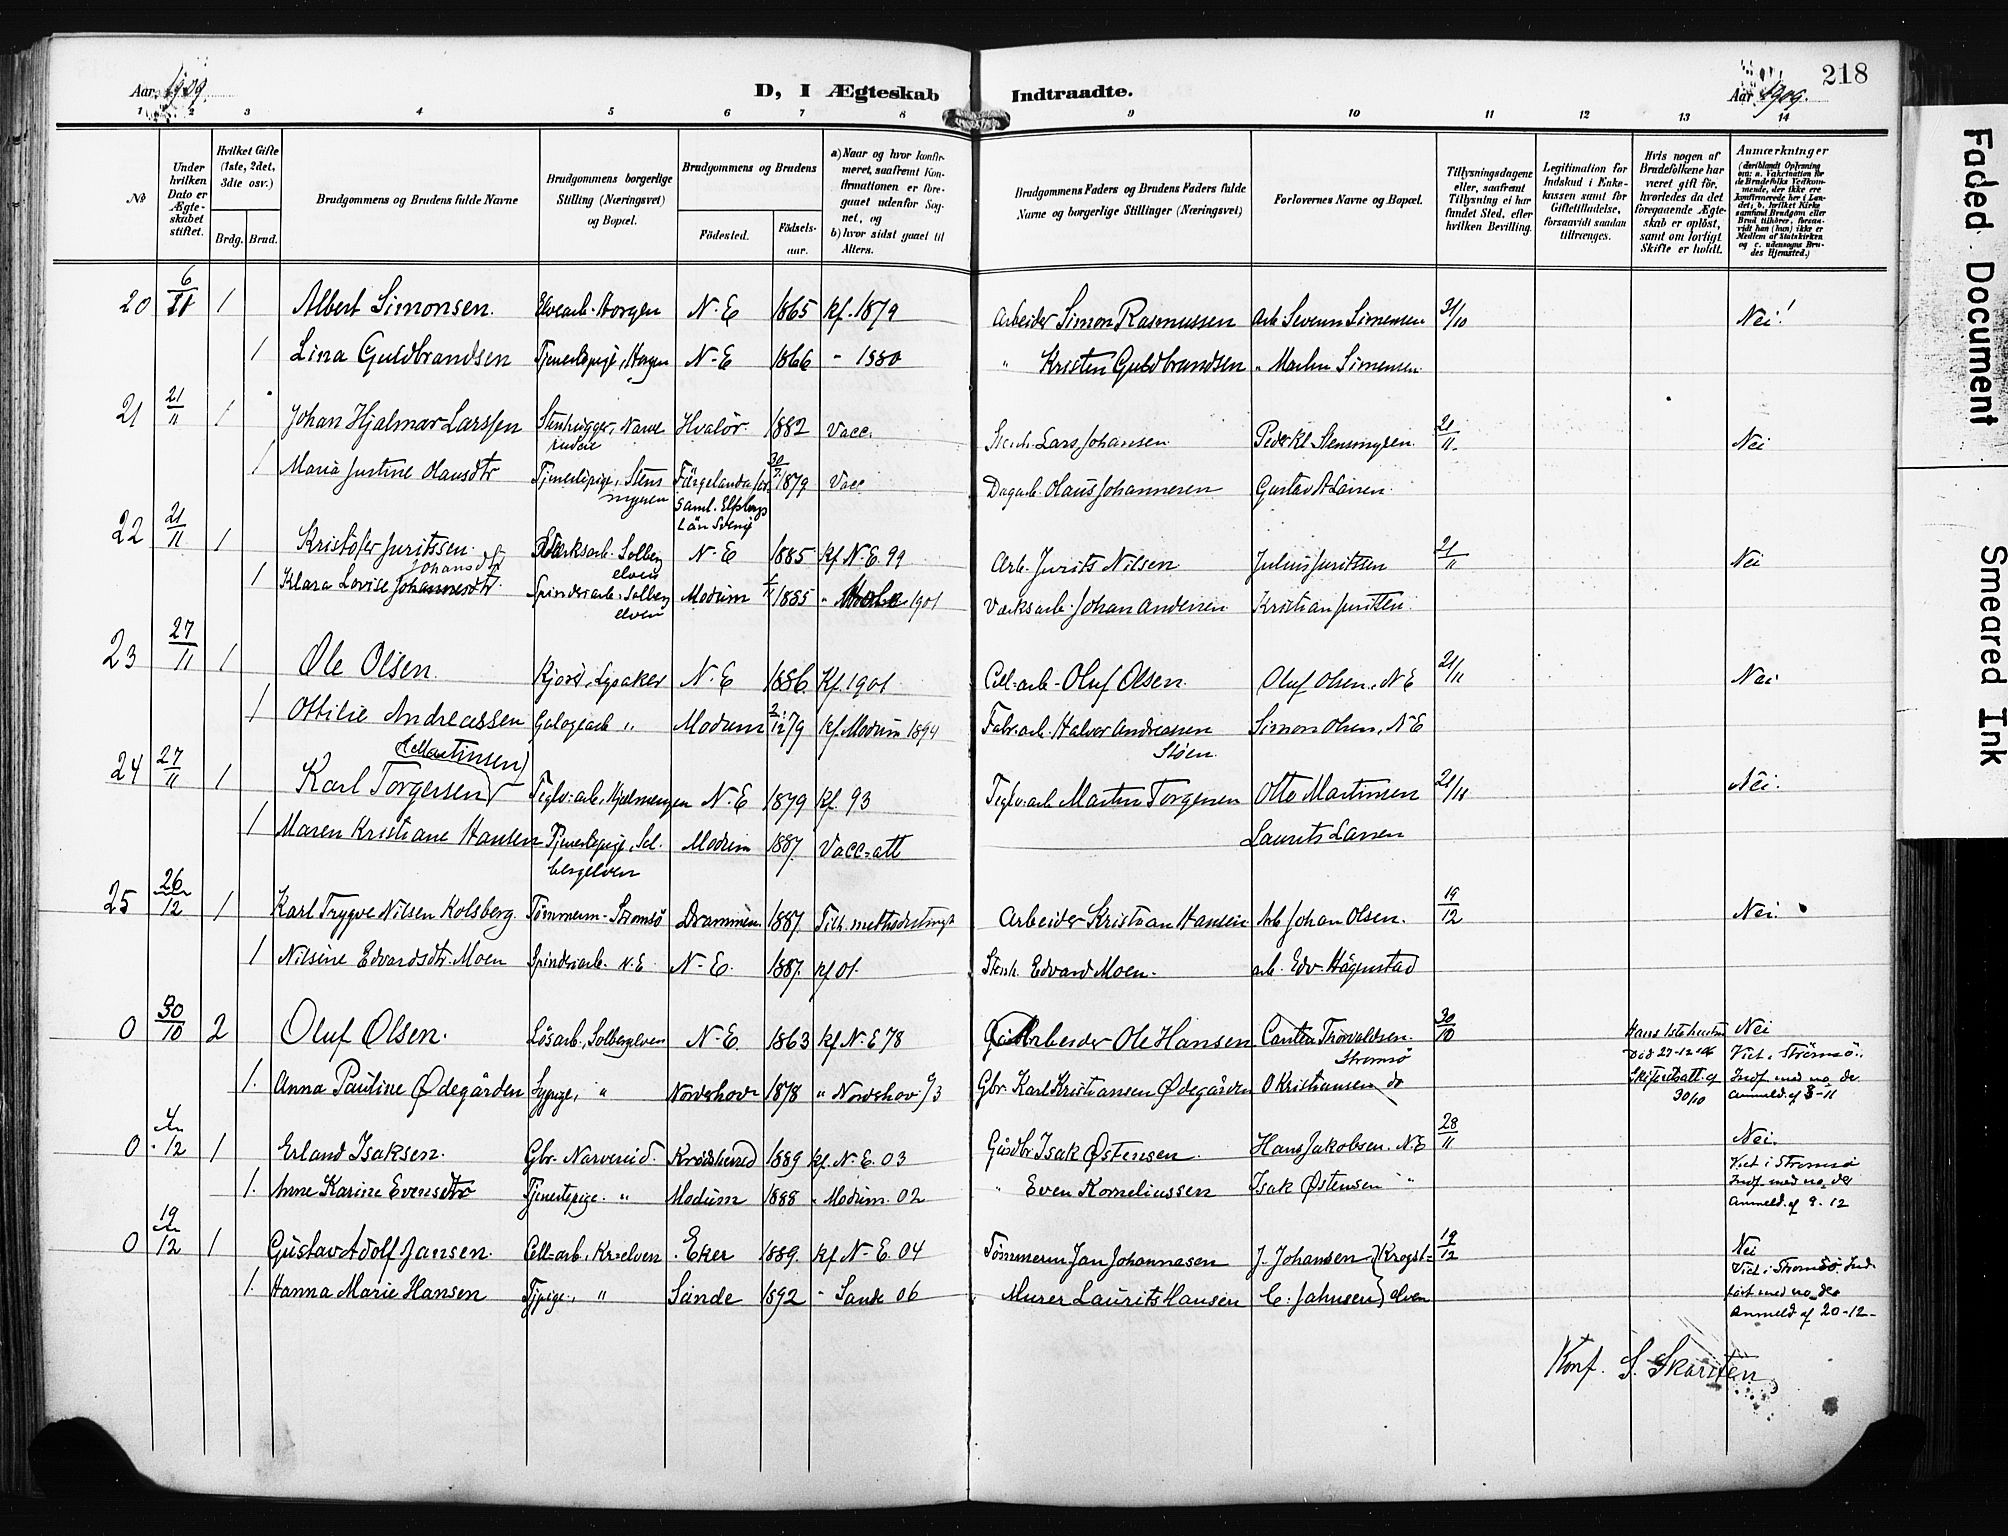 Aar 1909.
D, I Ægteskab Indtraadte.
Aar 1909.
218
1 2 3 4 5 6 7 8 9 10 11 12 13 14
№
Under hvilken Dato er Ægteskabet stiftet.
Hvilket Gifte (1ste, 2det, 3dte osv.)
Brdg. Brud.
Brudgommens og Brudens fulde Navne
Brudgommens borgerlige Stilling (Næringsvei) og Bopæl.
Brudgommens og Brudens
Fødested.
Fødselsaar.
a) Naar og hvor konfirmeret, saafremt Konfirmationen er foregaaet udenfor Sognet, og
b) hvor sidst gaaet til Alters.
Brudgommens Faders og Brudens Faders fulde Navne og borgerlige Stillinger (Næringsvei)
Forlovernes Navne og Bopæl.
Tillysningsdagene eller, saafremt Tillysning ei har fundet Sted, efter hvilken Bevilling.
Legitimation for Indskud i Enkekassen samt for Giftetilladelse, forsaavidt saadan tiltrænges.
Hvis nogen af Brudefolkene har været gift før, hvorledes da det foregaaende Ægteskab er opløst, samt om lovligt Skifte er holdt.
Anmærkninger
(deriblandt Oplysning om: a. Vakcination for de Brudefolks Vedkommende, der ikke ere konfirmerede her i Landet, b. hvilket Kirkesamfund Brudgom eller Brud tilhører, forsaavidt han (hun) ikke er Medlem af Statskirken og c. udensogns Brudes Hjemsted.)
20 6/11 1 Albert Simonsen. Elvearb. Horgen N-E 1865 kf. 1879 Arbeider Simon Rasmussen Arb Severin Simensen 31/10 Nei!
1 Lina Guldbrandsen Tjenestepige, Horgen N-E 1866 " 1880 " Kristen Guldbrandsen " Martin Simensen
21 21/11 1 Johan Hjalmar Larssen Stenhugger, Hvalør 1882 Vacc. Stenh. Lars Johansen Peder Kl Stensmyren 21/11 Nei
1 Maria Justine Olausdtr Tjenestepige, Stensmyren Färgelanda 1879 Vacc Dagarb. Olaus Johannesen Gustav A Larsen
Saml. Elfsborgs
Län Sverig
22 21/11 1 Kristofer Juritssen Solbergelven N-E 1885 kf N-E 99 Arb. Jurits Nilsen Julius Juritsen 21/11 Nei
Johansdtr
1 Klara Lovise Johannesdtr Spinderiarb. Solbergelven Modum 1885 " 1901 Værksarb. Johan Andersen Kristian Juritsen
23 27/11 1 Ole Olsen. Lysaker N-E 1886 Kf. 1901 Cel-arb- Oluf Olsen. Oluf Olsen, N-E 21/11 Nei
1 Ottilie Andreassen " Modum 2/12 79 kf. Modum 1894 Fabr.arb. Halvor Andreassen Støen Simon Olsen, N-E
(Martinsen)
24 27/11 1 Karl Torgersen Teglv-arb, Hjelmengen N-E 1879 kf 93 Teglv-arb Martin Torgersen Otto Martinsen 21/11 Nei.
1 Maren Kristiane Hansen Tjenestepige, Solbergelven Modum 1887. Vacc-att Laurits Larsen
25 26/12 1 Karl Trygve Nilsen Kolsberg Tømmerm- Strømsø Drammen 1887. Arbeider Kristian Hansen Arb Johan Olsen. 19/12 Nei.
1 Nilsine Edvardsdtr. Moen Spinderiarb. N-E N-E. 1887. kf 01. Stenh. Edvard Moen. arb. Edv. Hagenstad
0 30/10 2 Oluf Olsen. Løsarb, Solbergelven N-E. 1863 kf N-E 78 Arbeider Ole Hansen Carsten Thorvaldsen Strømsø 30/10 Hans 1ste hustru Død 27-12-06 Skifteatt. af 30/10 Nei Viet i Strømsø. Indf. med no de Anmeld. af 3-11
1. Anna Pauline Ødegården Sypige, " Norderhov 1878 " Norderhov 93 Gbr. Karl Kristiansen Ødegården O Kristiansen do
0 4/12 1 Erland Isaksen. Gbr. Narverud. Krødsherred 1889 kf. N-E. 03 Gårdbr Isak Østensen. Hans Jakobsen. N-E 28/11 Nei. Viet i Strømsø Indf. med no de Anmeld. af 9-12
1. Anne Karine Evensdtr Tjenestepige. " Modum 1888 " Modum. 02 " Even Korneliussen Isak Østensen "
0 19/12 1 Gustav Adolf Jansen. Cell-arb, Kr-elven Eker 1889. kf N-E. 04 Tømmerm Jan Johannesen J. Johansen 19/12 Nei Viet i Strømsø Indført med no de Anmeld af 20-12-
1. Hanna Marie Hansen Tjpige, " Sande 1892 " Sande 06 Murer Laurits Hansen C. Jahnsen } Krogstelven
Konf. S. Skarsten
Faded Document
Smeared Ink